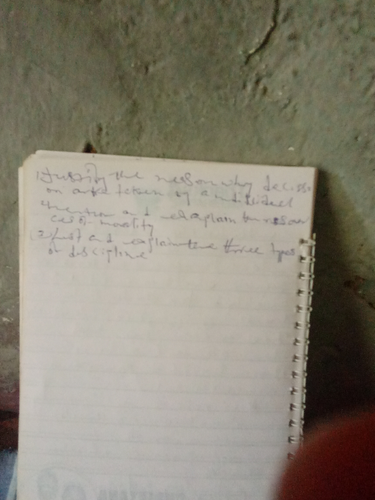 1) Jussify the reason why decisio
on are taken by individual
and explain the reason
morality
2) list and explain the three types
of discipline